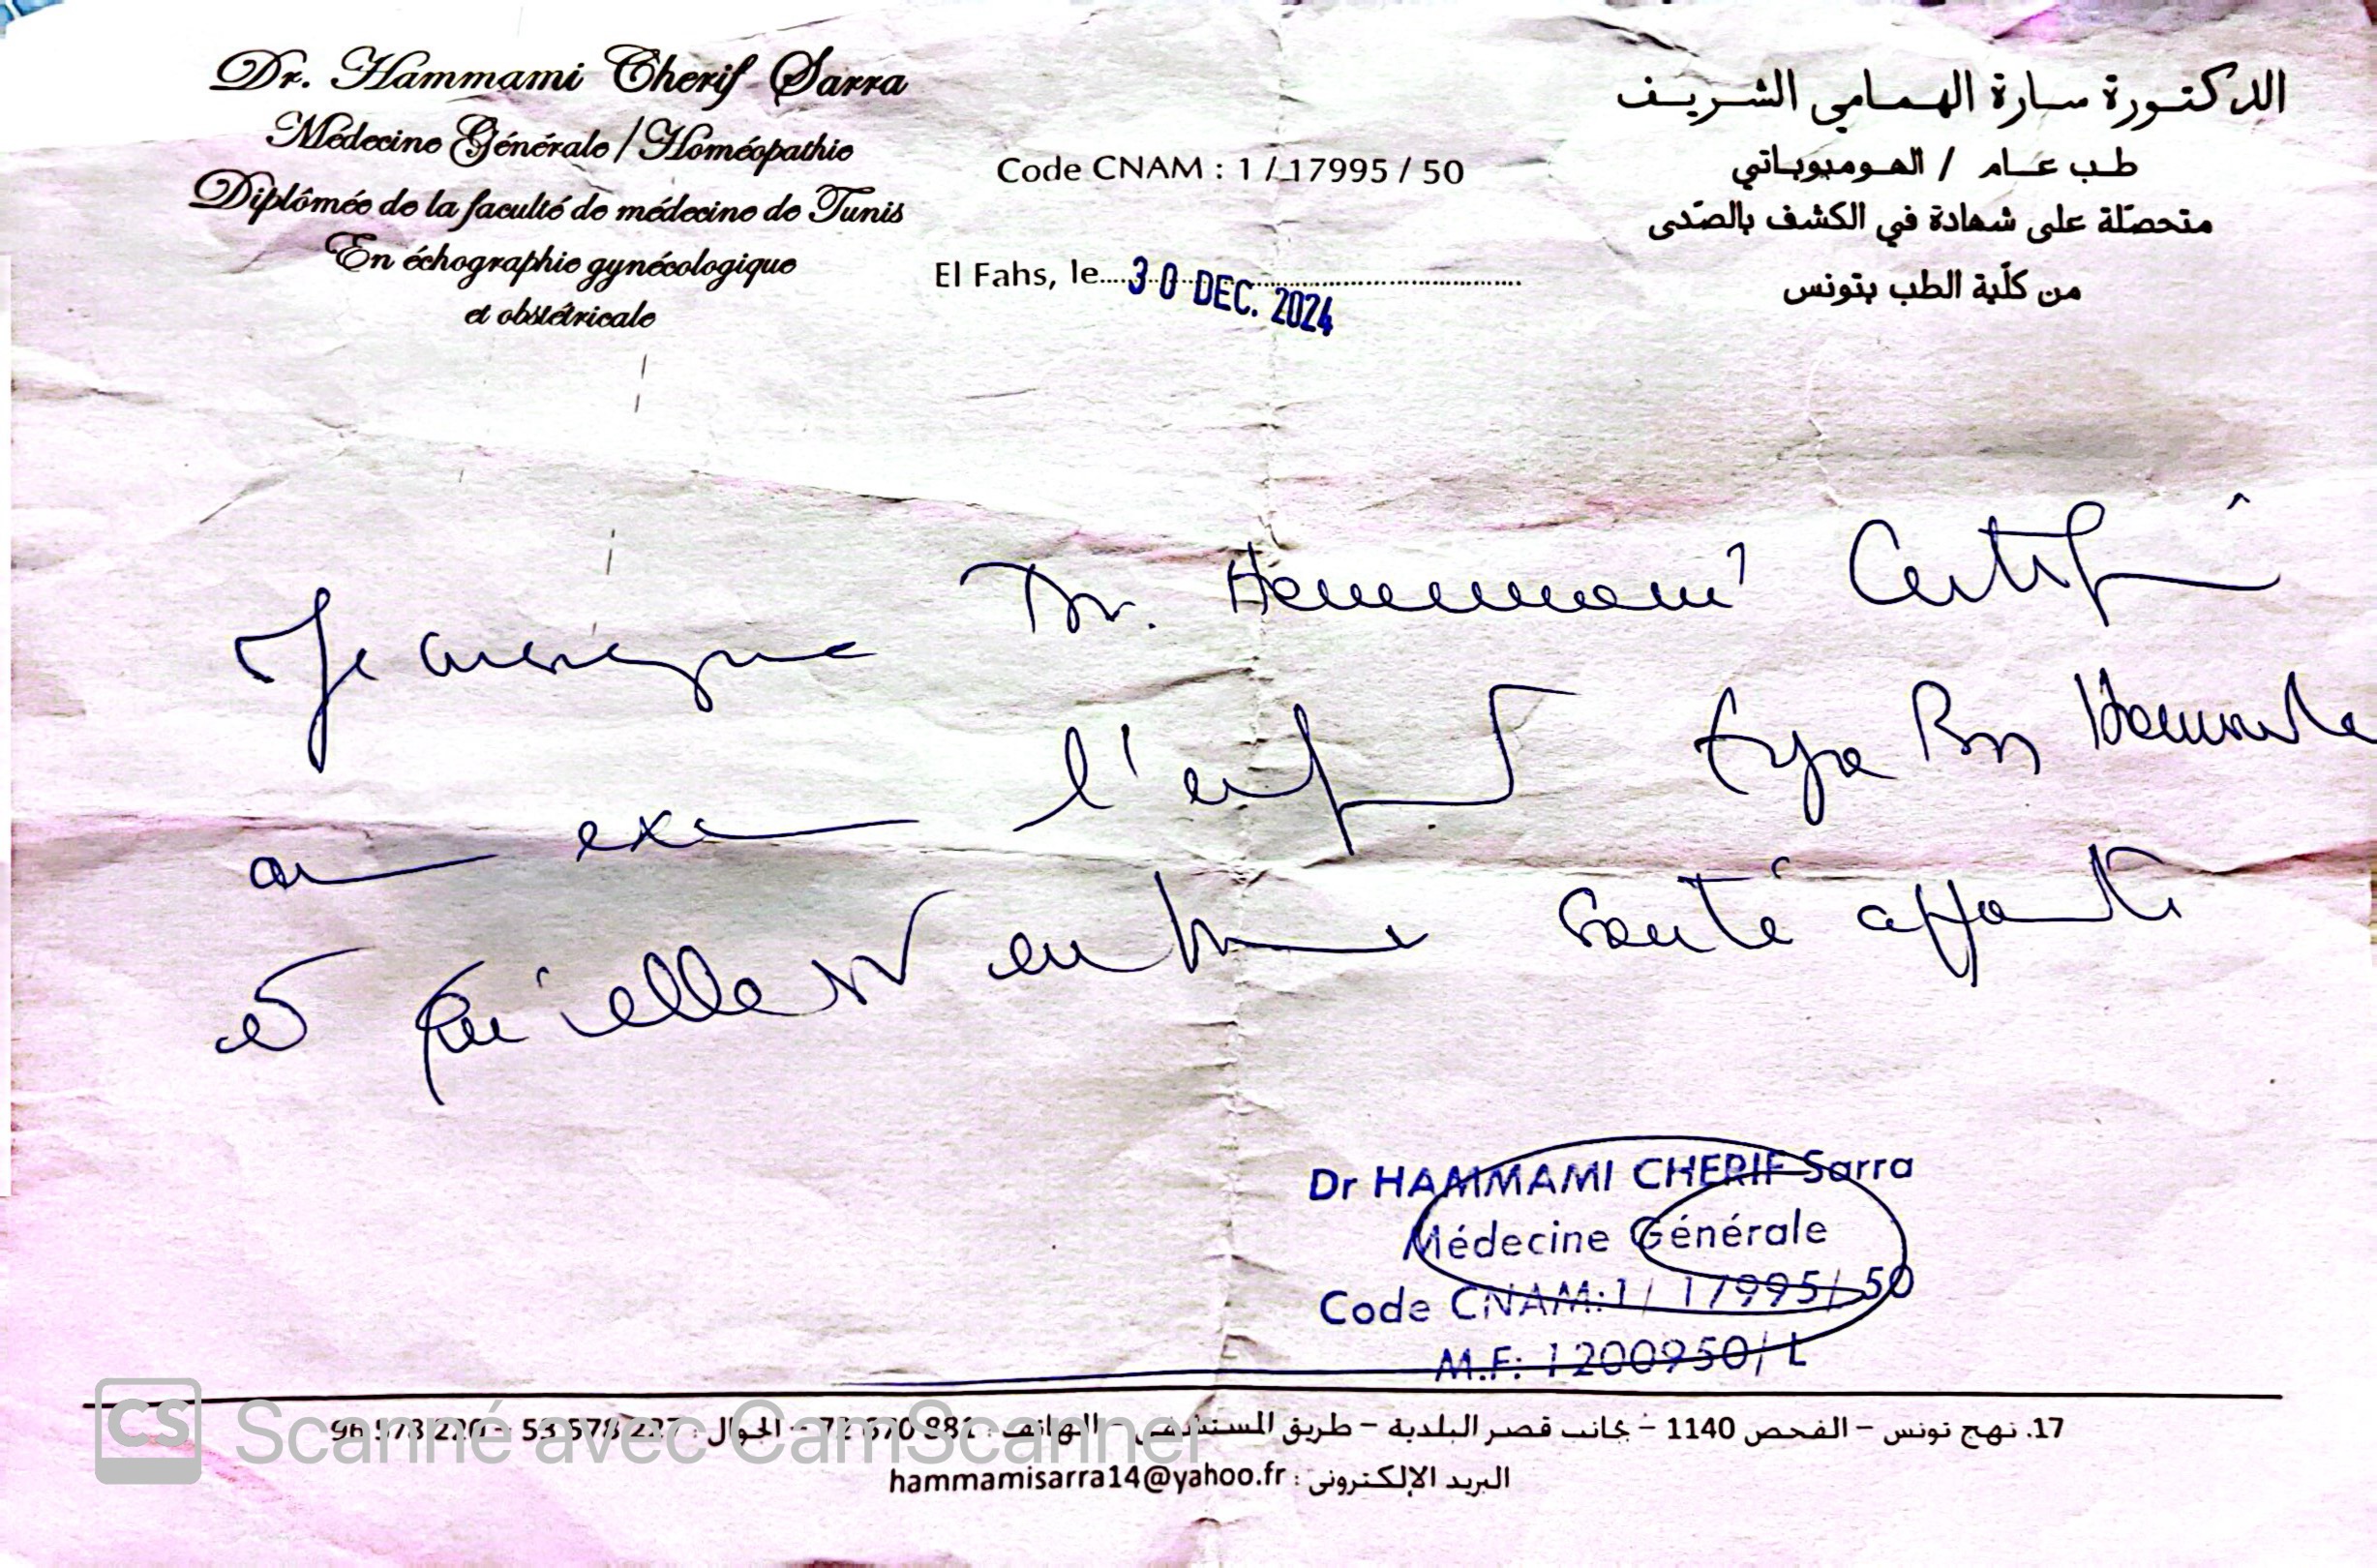 Dr. Hammami Cherif Sarra
Médecine Générale / Homéopathie
Diplômée de la faculté de médecine de Tunis
En échographie gynécologique
et obstétricale
Code CNAM : 1 / 17995 / 50
El Fahs, le 30 DEC. 2024
الدكتورة سارة الهمامي الشريف
طب عام / الهوميوباتي
متحصّلة على شهادة في الكشف بالصّدى
من كلّية الطب بتونس
Je soussigné Dr. Hammami Certifi
l'enfant Eya Ben
et qu'elle est en bonne santé apparente
Dr HAMMAMI CHERIF Sarra
Médecine Générale
Code CNAM: 1 / 17995 / 50
M.F: 1200950/ L
17. نهج تونس – الفحص 1140 – بجانب قصر البلدية – طريق المستشفى – الهاتف : 72 670 881 – الجوال : 53 578 227 – 96 578 220
البريد الإلكتروني : hammamisarra14@yahoo.fr
CS Scanné avec CamScanner